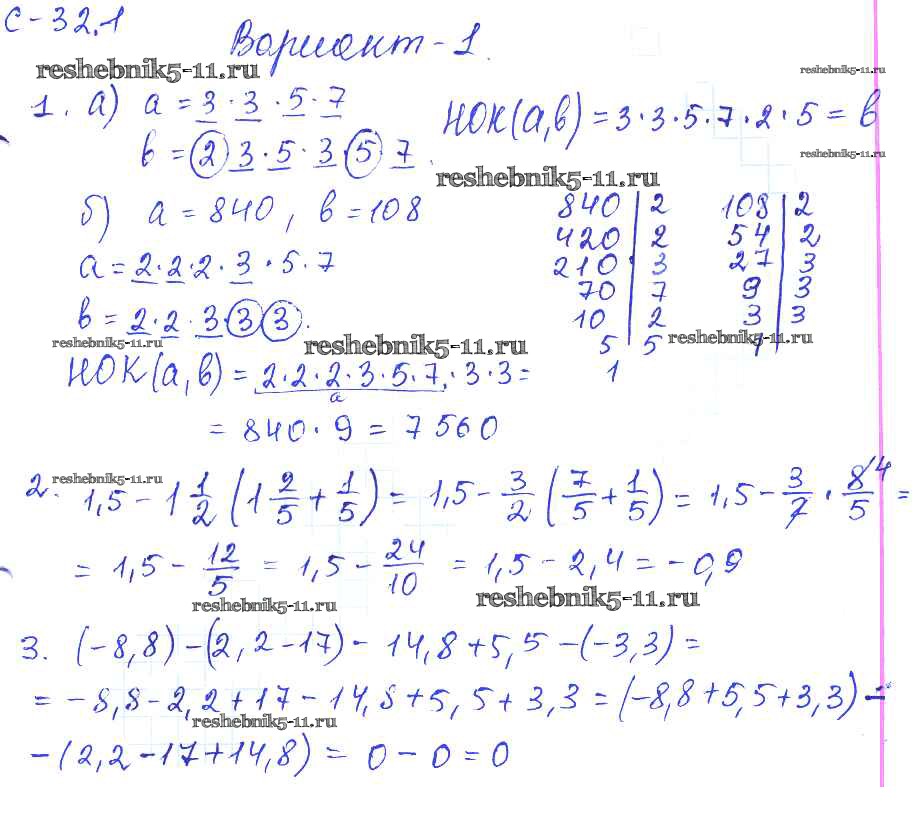 С-32.1
Вариант-1.
reshebnik5-11.ru
reshebnik5-11.ru
1. а) а = 3 · 3 · 5 · 7
НОК(а,в) = 3·3·5·7·2·5 = в
в = 2 3 · 5 · 3 5 7.
reshebnik5-11.ru
reshebnik5-11.ru
б) а = 840, в = 108
840 | 2
420 | 2
210 | 3
70 | 7
10 | 2
5 | 5
1
108 | 2
54 | 2
27 | 3
9 | 3
3 | 3
1
а = 2·2·2·3·5·7
в = 2·2·3·3 3.
reshebnik5-11.ru
reshebnik5-11.ru
reshebnik5-11.ru
НОК(а,в) = 2·2·2·3·5·7·3·3=
а
= 840·9 = 7560
reshebnik5-11.ru
2. 1,5 - 1 1/2 (1 2/5 + 1/5) = 1,5 - 3/2 (7/5 + 1/5) = 1,5 - 3/2 · 8/5 4 =
= 1,5 - 12/5 = 1,5 - 24/10 = 1,5 - 2,4 = -0,9
reshebnik5-11.ru
reshebnik5-11.ru
3. (-8,8) - (2,2-17) - 14,8 + 5,5 - (-3,3) =
= -8,8 - 2,2 + 17 - 14,8 + 5,5 + 3,3 = (-8,8 + 5,5 + 3,3) -
reshebnik5-11.ru
- (2,2 - 17 + 14,8) = 0 - 0 = 0